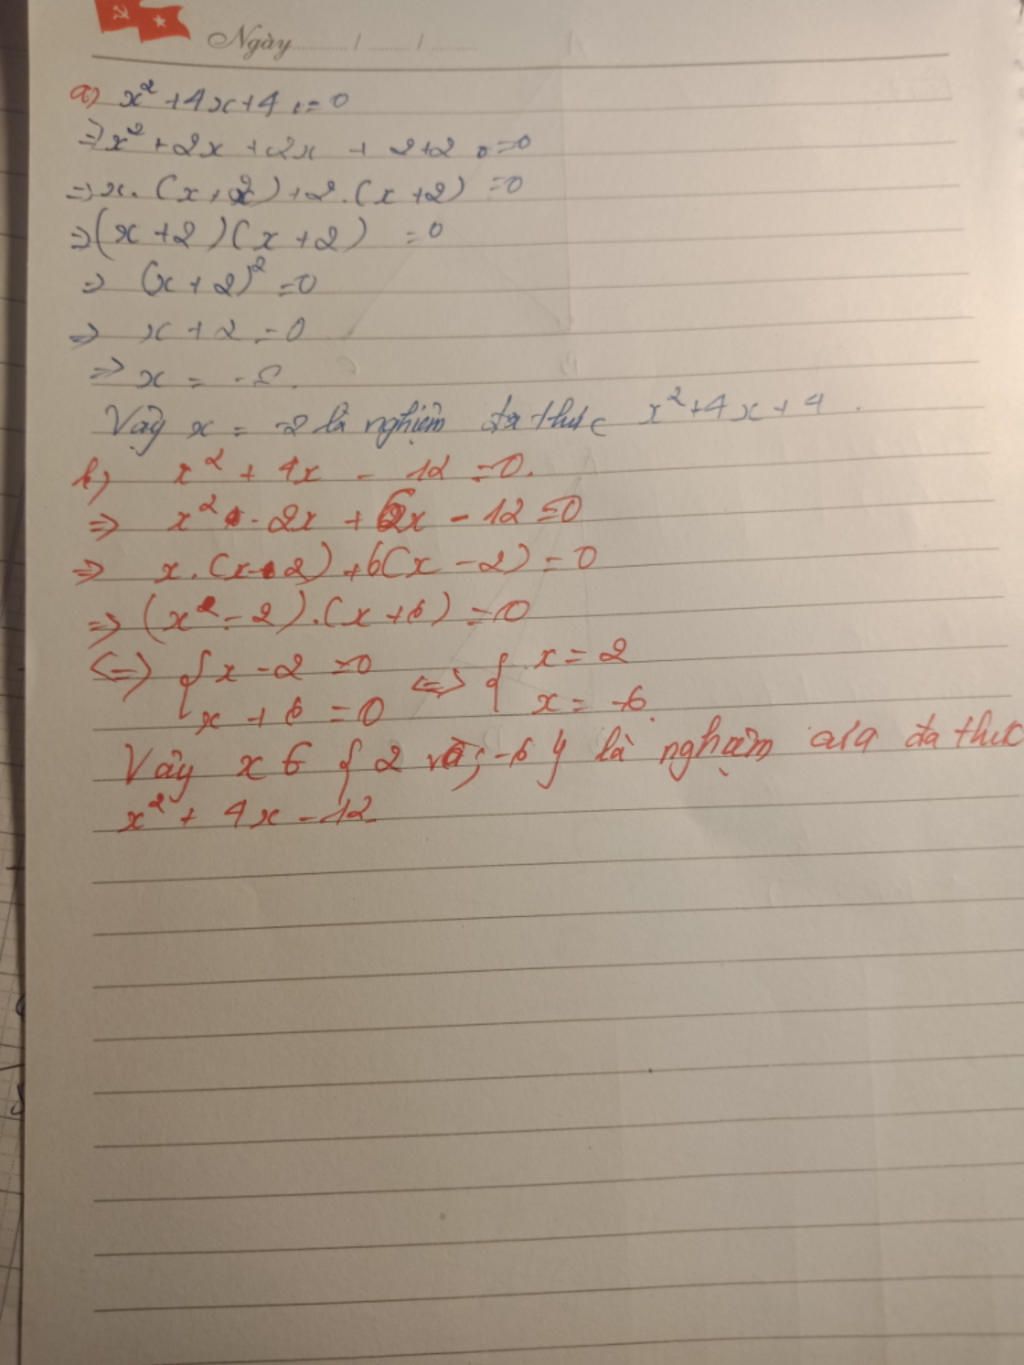 Ngày / /
a) x² + 4x + 4 = 0
⇒ x² + 2x + 2x + 2+2 = 0
⇒ x.(x+2) + 2.(x+2) = 0
⇒ (x+2)(x+2) = 0
⇒ (x+2)² = 0
⇒ x + 2 = 0
⇒ x = -2.
Vậy x = -2 là nghiệm đa thức x² + 4x + 4.
b) x² + 4x - 12 = 0.
⇒ x² - 2x + 6x - 12 = 0
⇒ x.(x-2) + 6(x-2) = 0
⇒ (x² - 2).(x+6) = 0
⇔ { x - 2 = 0 ⇔ { x = 2
x + 6 = 0 x = -6.
Vậy x ∈ { 2 ; -6 } là nghiệm của đa thức
x² + 4x - 12